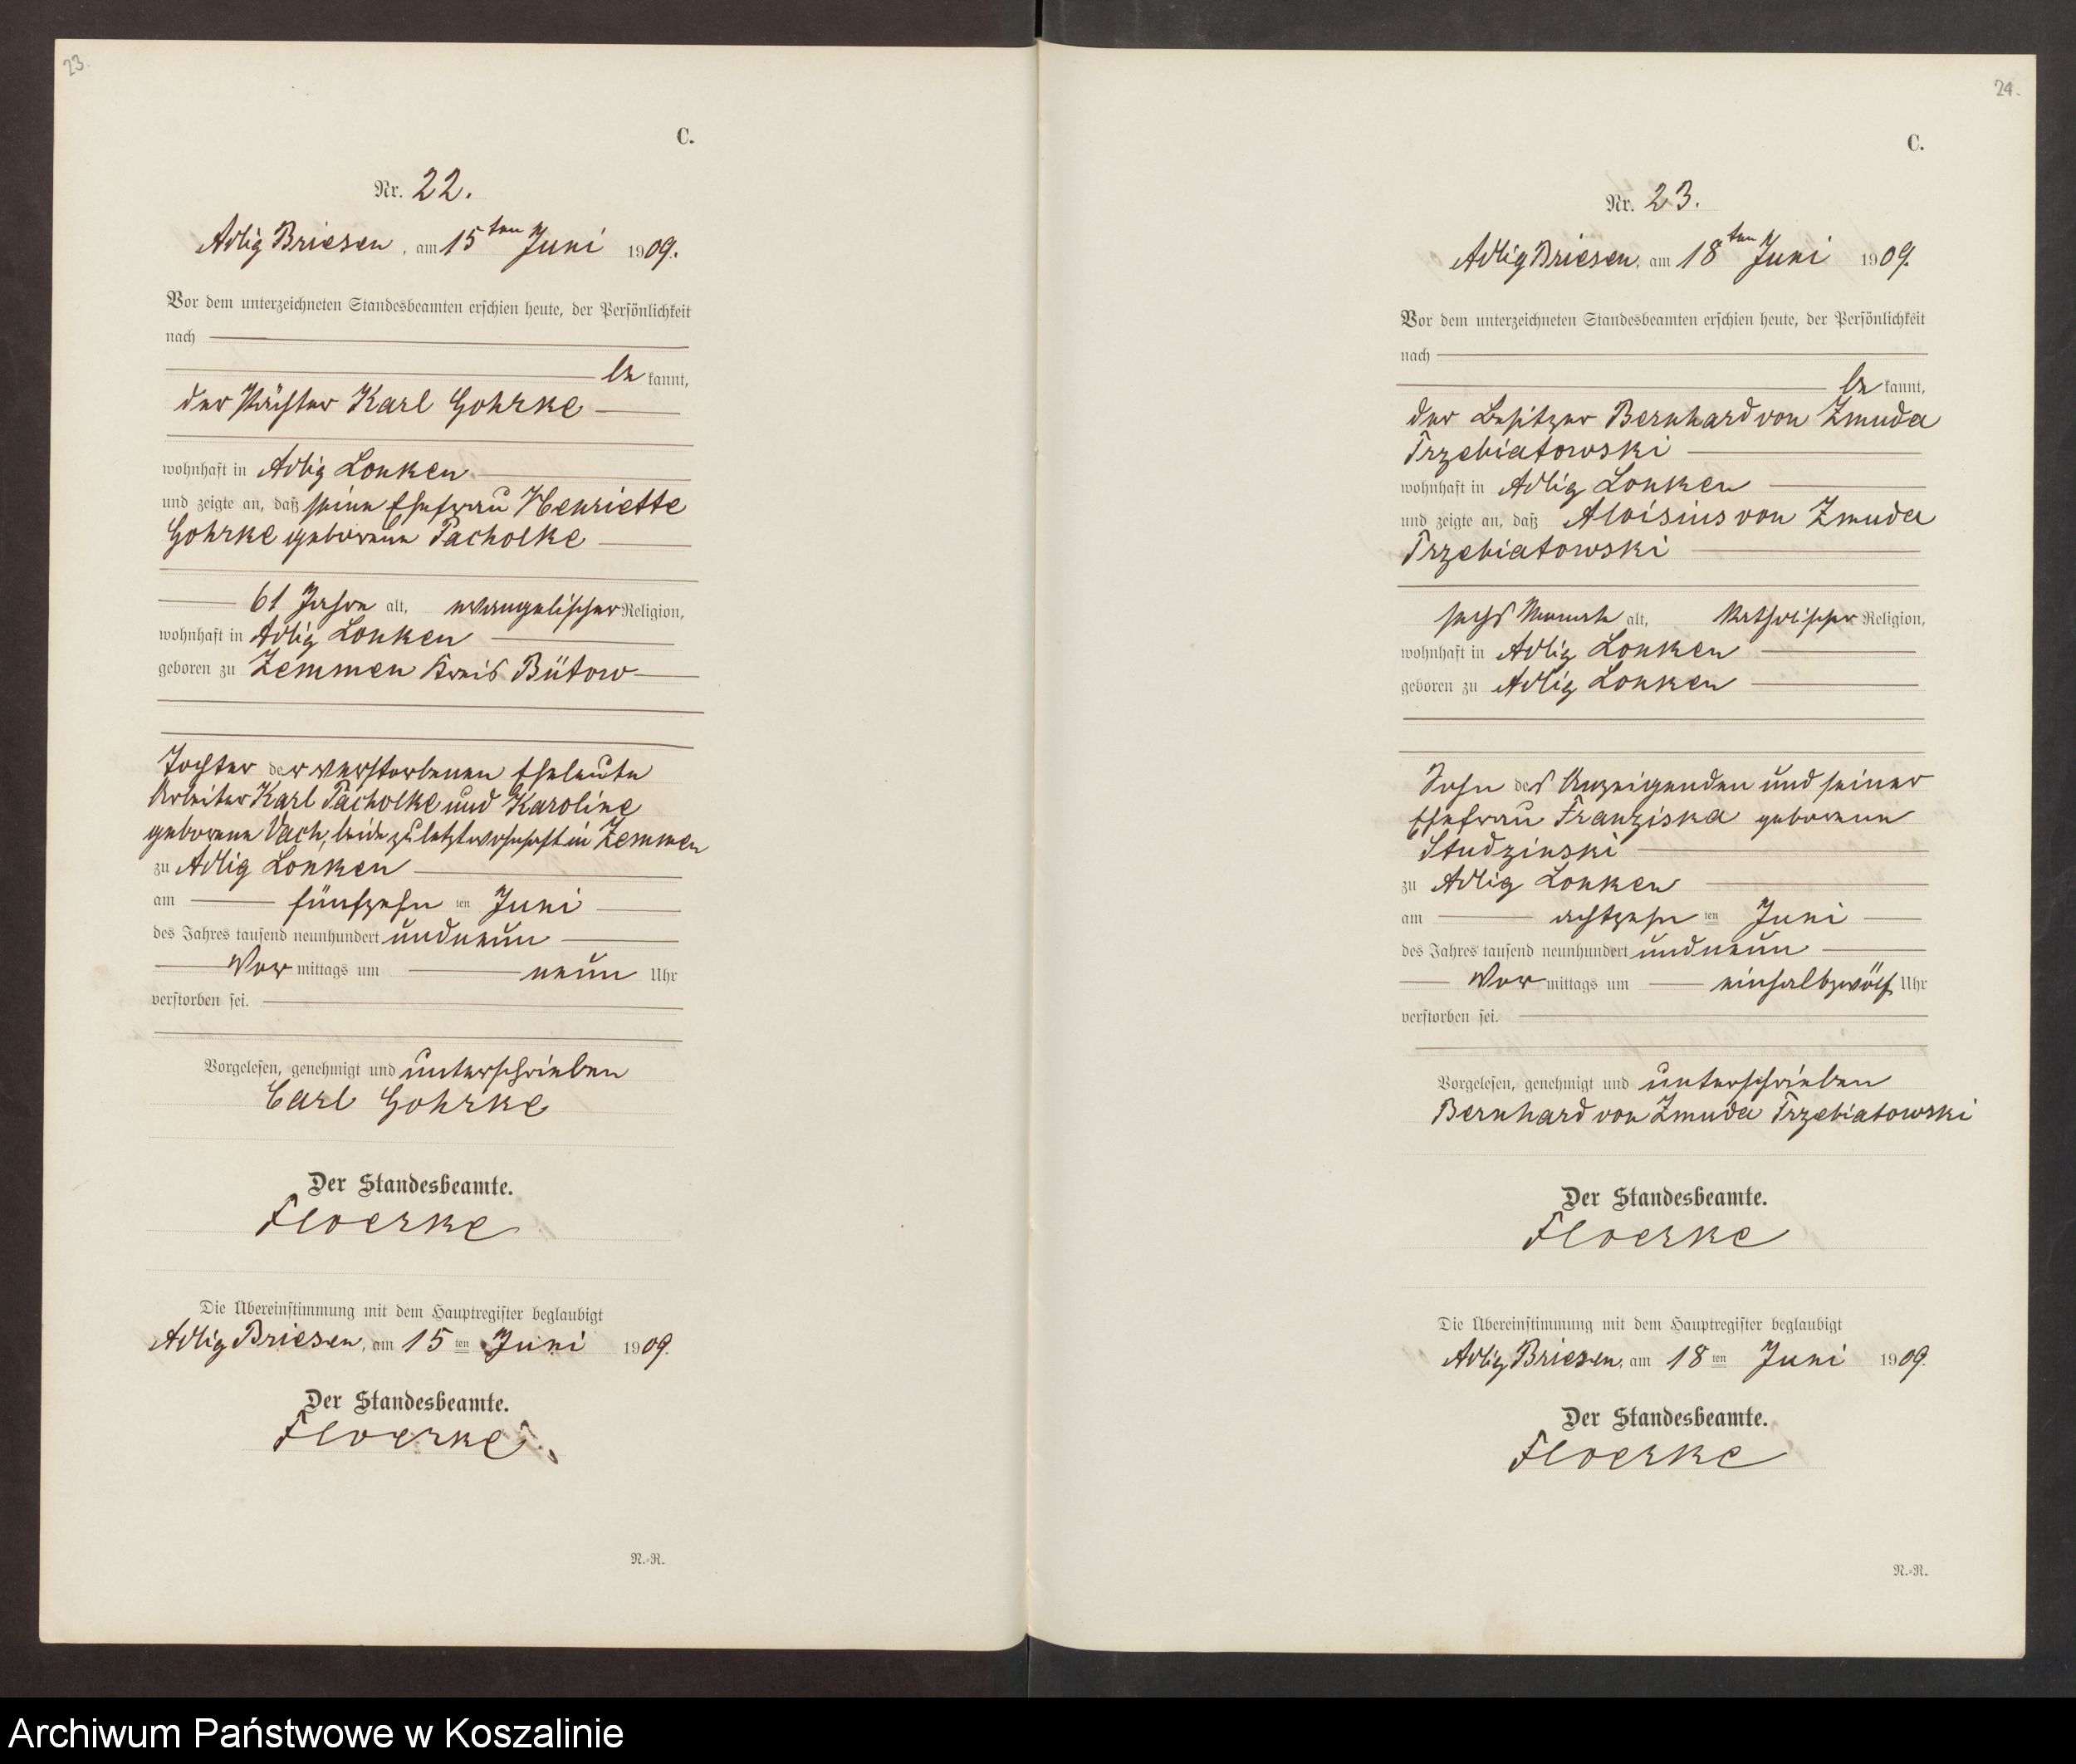 23.
C.
Nr. 22.
Adlig Briesen, am 15ten Juni 1909.
Vor dem unterzeichneten Standesbeamten erschien heute, der Persönlichkeit
nach
be kannt,
der Pächter Karl Gohrke
wohnhaft in Adlig Lonken
und zeigte an, daß seine Ehefrau Henriette
Gohrke geborene Pacholke
61 Jahre alt, evangelischer Religion,
wohnhaft in Adlig Lonken
geboren zu Zemmen Kreis Bütow
Tochter der verstorbenen Eheleute
Arbeiter Karl Pacholke und Karoline
geborene Vach, beide zuletzt wohnhaft in Zemmen
zu Adlig Lonken
am fünfzehn ten Juni
des Jahres tausend neunhundert undneun
Vor mittags um neun Uhr
verstorben sei.
Vorgelesen, genehmigt und unterschrieben
Carl Gohrke
Der Standesbeamte.
Floerke
Die Übereinstimmung mit dem Hauptregister beglaubigt
Adlig Briesen, am 15 ten Juni 1909.
Der Standesbeamte.
Floerke.
N.-R.
24.
C.
Nr. 23.
Adlig Briesen, am 18ten Juni 1909.
Vor dem unterzeichneten Standesbeamten erschien heute, der Persönlichkeit
nach
be kannt,
der Besitzer Bernhard von Zmuda
Trzebiatowski
wohnhaft in Adlig Lonken
und zeigte an, daß Aloisius von Zmuda
Trzebiatowski
sechs Monate alt, katholischer Religion,
wohnhaft in Adlig Lonken
geboren zu Adlig Lonken
Sohn des Anzeigenden und seiner
Ehefrau Franziska geborene
Studzinski
zu Adlig Lonken
am achtzehn ten Juni
des Jahres tausend neunhundert undneun
Vor mittags um einhalbzwölf Uhr
verstorben sei.
Vorgelesen, genehmigt und unterschrieben
Bernhard von Zmuda Trzebiatowski
Der Standesbeamte.
Floerke
Die Übereinstimmung mit dem Hauptregister beglaubigt
Adlig Briesen, am 18 ten Juni 1909.
Der Standesbeamte.
Floerke
N.-R.
Archiwum Państwowe w Koszalinie